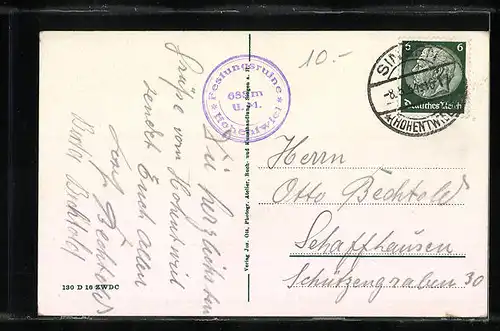 10.-
Festungsruine
688m
ü. M.
Hohentwiel
SINGEN
(HOHENTWIEL)
6
Deutsches Reich
Die herzlichsten
Grüße vom Hohentwiel
sendet Euch allen
Bechtold
Bechtold
Herrn
Otto Bechtold
Schaffhausen
Schützengraben 30
Verlag Jos. Ott, Photogr. Atelier, Buch- und Kunsthandlung, Singen a. H.
130 D 16 ZWDC